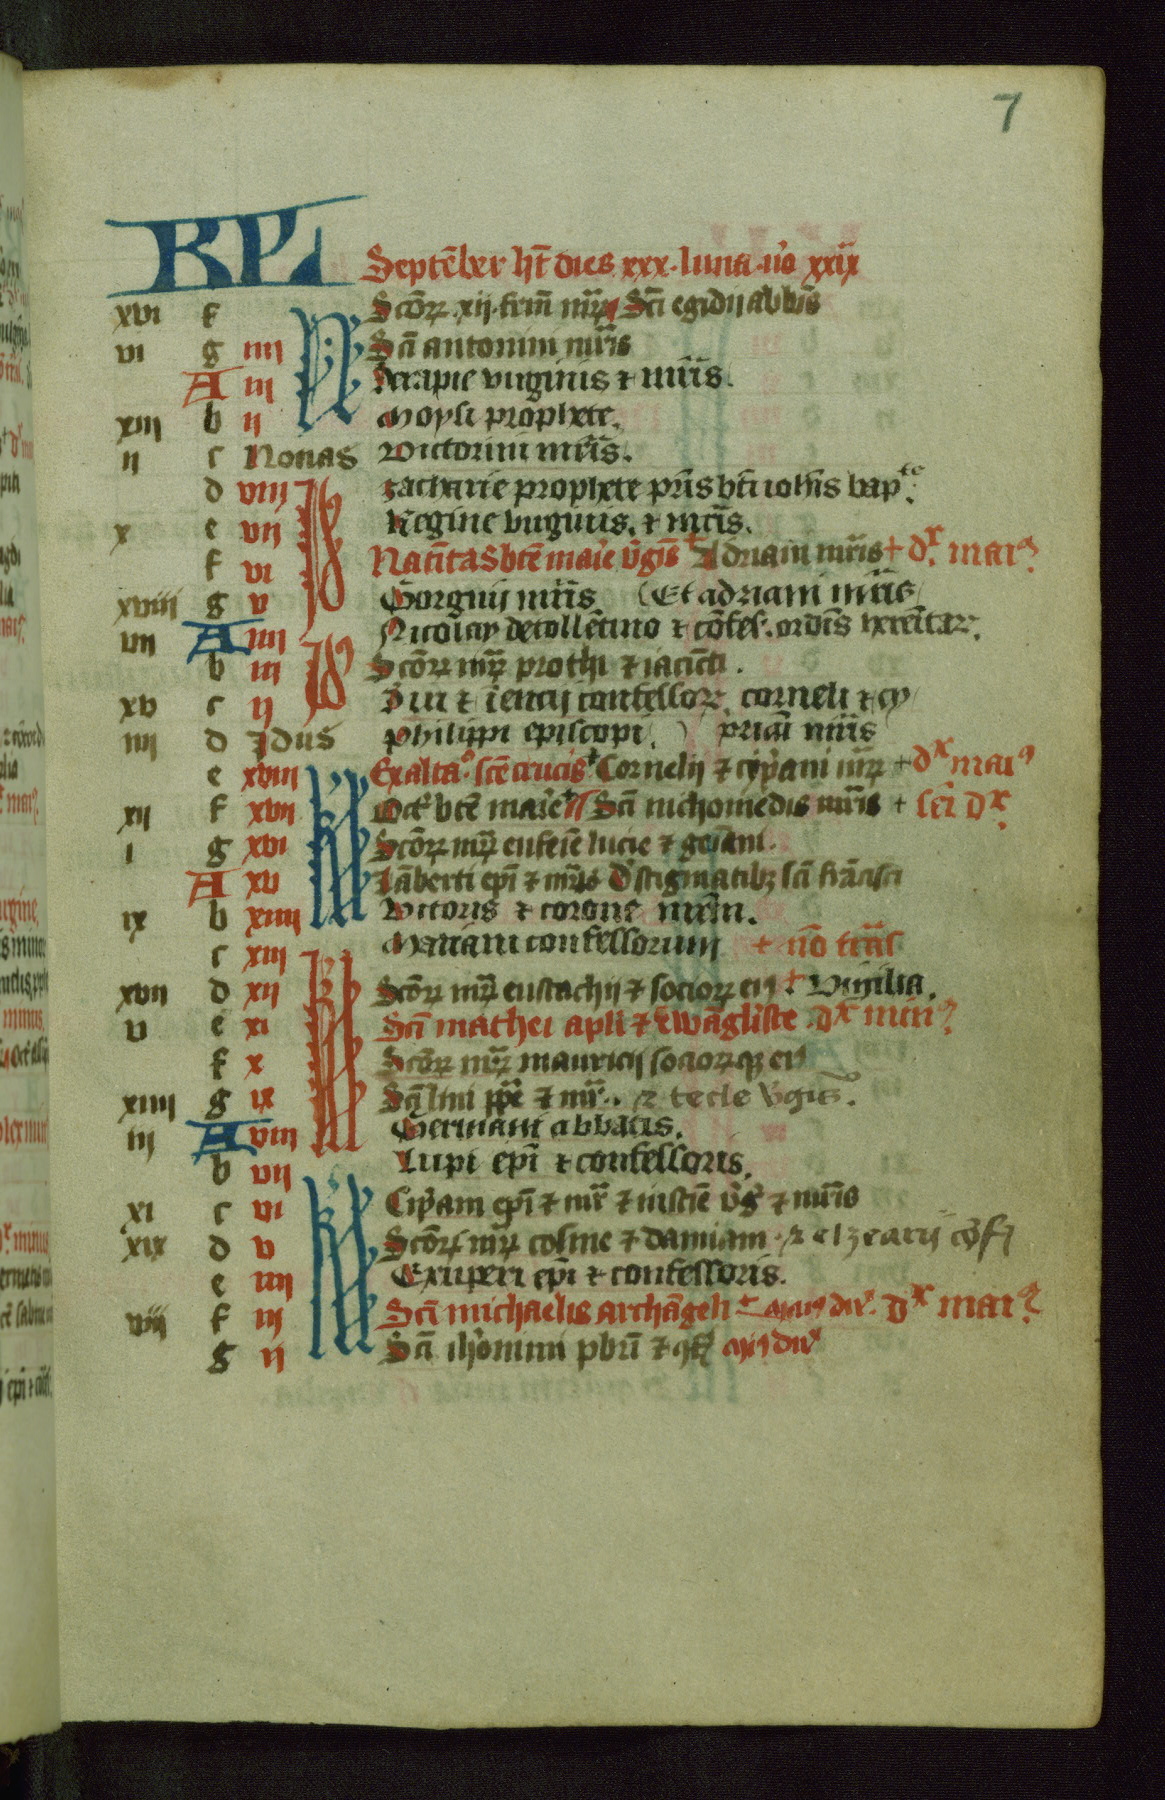 7
KL Septēber ht̄ dies xxx luna uo xxix
xvi f Scōꝝ xij frm̄ mr̄ꝝ Sci egidij abbis
vi g iiii Scī antonini mr̄is
A iii Serapie virginis ⁊ mr̄is.
xiii b ii Moysi prophete.
ii c Nonas Victorini mr̄is.
d viii zacharie prophete pr̄is bt̄i ioh̄is bapᵗᵉ.
x e vii Regine virginis. ⁊ mr̄is.
f vi Natītas btē marie v̄gis † Adriani mr̄is † dˣ. maiꝰ
xviii g v Gorgnij mr̄is (Et adriani mr̄is
vii A iiii Nicolay de tollētino ⁊ cōfes. ordīs
b iii Scōꝝ mr̄ꝝ prothi ⁊ iacīcti.
xv c ii confessoꝝ corneli ⁊ cy
iiii d Idus philippi episcopi. ) priani mr̄is
e xviii Exaltaᵒ scē crucis † Cornelij ⁊ cip̄ani mr̄ꝝ † dˣ maiꝰ
xii f xvii Oct̄ btē marie † Scī nichomedis mr̄is † sci dˣ.
i g xvi Scōꝝ mr̄ꝝ eufeīe lucie ⁊ gem̄ani.
A xv Lāberti epī ⁊ mr̄is D stigmatibꝫ scī frācisci
ix b xiiii Victoris ⁊ corone mr̄m.
c xiii Mariani confessorum † nō
xvii d xii Scōꝝ mr̄ꝝ eustachij ⁊ socioꝝ eiꝰ † Vigilia.
v e xi Scī mathei apli ⁊ ewāgliste. dˣ miniꝰ
f x Scōꝝ mr̄ꝝ mauricij socioꝝqꝫ eiꝰ
xiiii g ix Scī lini pp̄e ⁊ mr̄. ⁊ tecle v̄gis.
iii A viii Germani abbatis.
b vii Lupi epī ⁊ confessoris.
xi c vi Cip̄ani epī ⁊ mr̄ ⁊ iustīe v̄g ⁊ mr̄is
xix d v Scōꝝ mr̄ꝝ cosme ⁊ damiani ⁊ elzearij cōf
e iiii Exuperi epī ⁊ confessoris.
viii f iii Scī michaelis archāgeli † maiꝰ du. dˣ maiꝰ
g ii Scī ih̄onimi pbrī ⁊ cf maiꝰ du